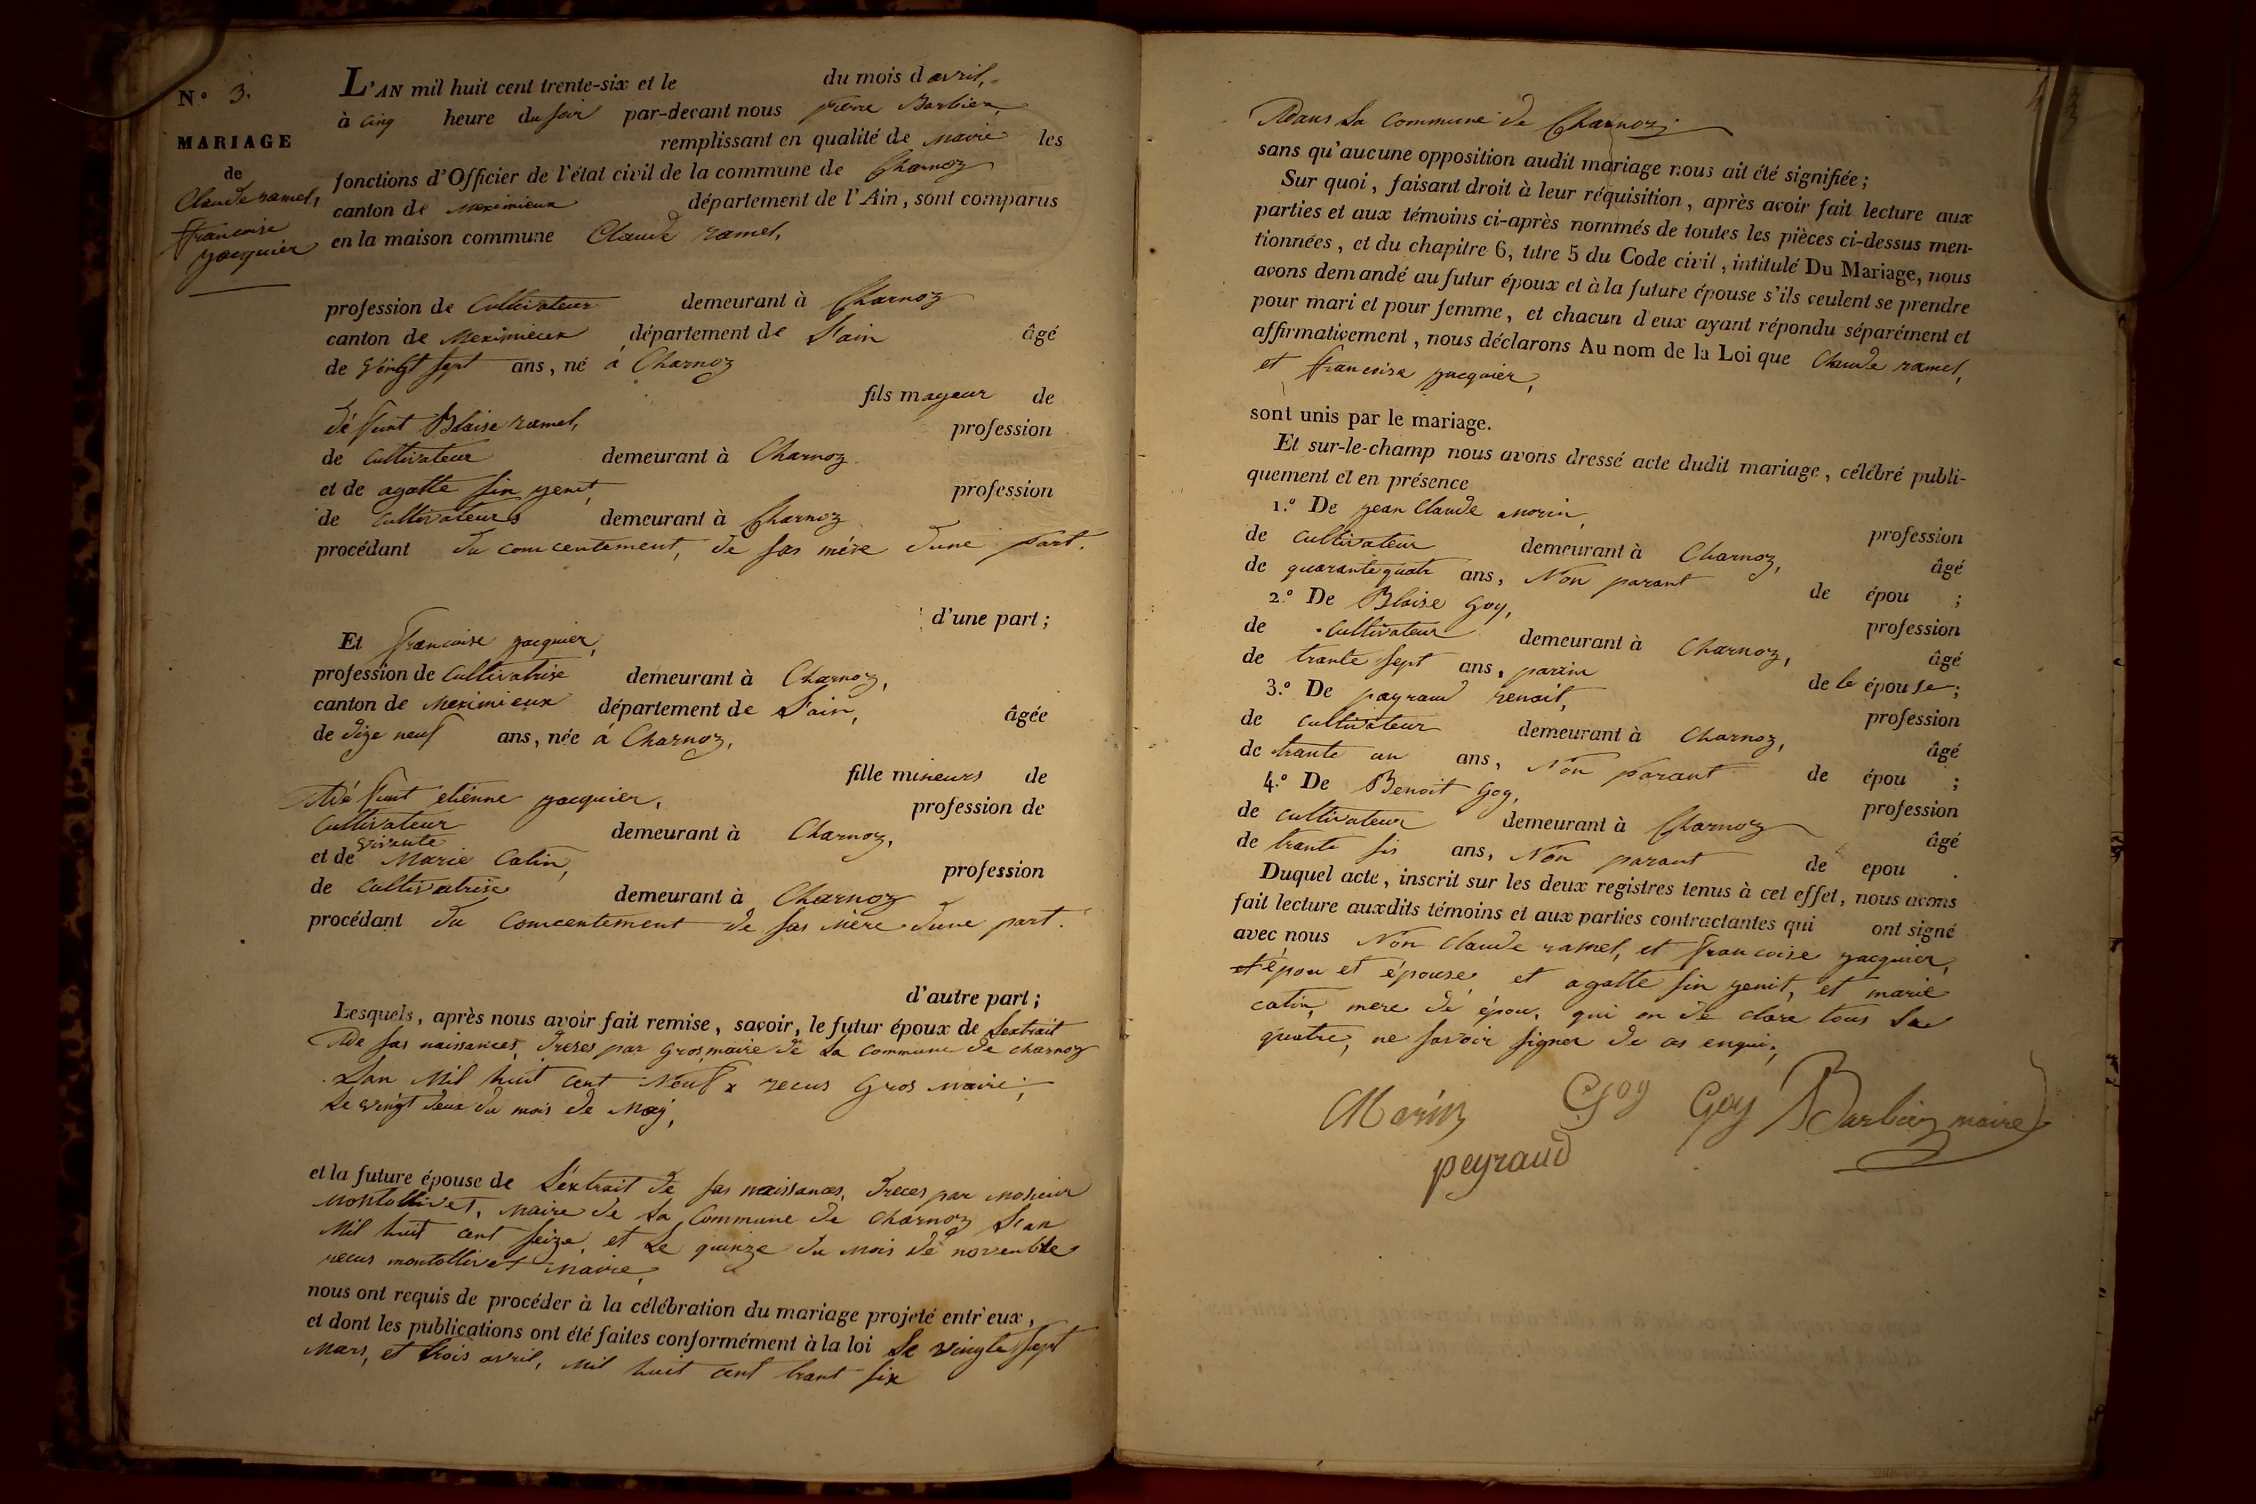 N.o 3.
MARIAGE
de
Claude ramel,
françoise
jacquier
L'AN mil huit cent trente-six et le du mois d avril,
à cinq heure du soir par-devant nous pierre Barbier,
remplissant en qualité de maire les
fonctions d'Officier de l'état civil de la commune de Charnoz
canton de meximieux département de l'Ain, sont comparus
en la maison commune Claude ramel,
profession de cultivateur demeurant à Charnoz
canton de meximieux département de L'ain âgé
de vingt sept ans, né à Charnoz
fils mayeur de
défunt Blaise ramel, profession
de cultivateur demeurant à Charnoz
et de agatte profession
de cultivateurs demeurant à Charnoz
procédant du concentement, de sas mére d'une part.
d'une part;
Et francoise jacquier,
profession de cultivatrise demeurant à Charnoz,
canton de meximieux département de L'ain, âgée
de dize neuf ans, née à Charnoz,
fille mineurs de
défunt etiénne jacquier, profession de
cultivateur demeurant à Charnoz,
vivante
et de Marie Catin, profession
de cultivatrise demeurant à Charnoz
procédant du concentement de sas mére dune part.
d'autre part;
Lesquels, après nous avoir fait remise, savoir, le futur époux de Lextrait
de sas naissances, dreses par Gros maire de La commune de charnoz
Lan Mil huit cent Neuf x recus Gros maire,
Le vingt deux du mois de May,
et la future épouse de L'éxtrait de sas naissances, dreces par mosieur
montollivet, maire de La Commune de charnoz L'an
Mil huit cent seize, et Le quinze du mois de novembre
recus montollivet maire,
nous ont requis de procéder à la célébration du mariage projeté entr'eux,
et dont les publications ont été faites conformément à la loi Le vingte sept
Mars, et trois avril, mil huit cent trant six
dans La commune de Charnoz
sans qu'aucune opposition audit mariage nous ait été signifiée;
Sur quoi, faisant droit à leur réquisition, après avoir fait lecture aux
parties et aux témoins ci-après nommés de toutes les pièces ci-dessus men-
tionnées, et du chapitre 6, titre 5 du Code civil, intitulé Du Mariage, nous
avons demandé au futur époux et à la future épouse s'ils veulent se prendre
pour mari et pour femme, et chacun d'eux ayant répondu séparément et
affirmativement, nous déclarons Au nom de la Loi que Claude ramel,
et francoise jacquier,
sont unis par le mariage.
Et sur-le-champ nous avons dressé acte dudit mariage, célébré publi-
quement et en présence
1.o De jean Claude morin, profession
de cultivateur demeurant à Charnoz, âgé
de quarante quatr ans, Non parant de épou ;
2.o De Blaise Goy, profession
de cultivateur demeurant à Charnoz, âgé
de trante sept ans, de le épouse;
3.o De payraud profession
de cultivateur demeurant à Charnoz, âgé
de trante un ans, Non parant de épou ;
4.o De Benoit Goy, profession
de cultivateur demeurant à Charnoz âgé
de trante sis ans, Non parant de epou .
Duquel acte, inscrit sur les deux registres tenus à cet effet, nous avons
fait lecture auxdits témoins et aux parties contractantes qui ont signé
avec nous Non Claude ramel, et francoise jacquier,
épou et épouse et agatte et marie
catin, mere de épou, qui on de clare tous
quatre, ne savoir signer de
Morin Goy Goy Barbier maire
peyraud